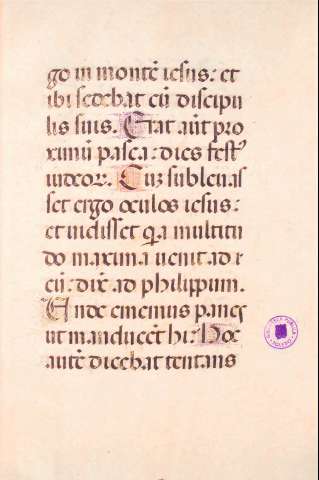 go in monte iesus: et
ibi sedebat cū discipu
lis suis. Erat aūt pro
ximū pasca: dies fest⁹
iudeor. Cūz subleuas
set ergo oculos iesus:
et uidisset q̄a multitu
do maxima uenit ad e
ū: dix̄ ad philippum.
Unde ememus panes
ut manducēt hi: Hoc
autē dicebat tentans